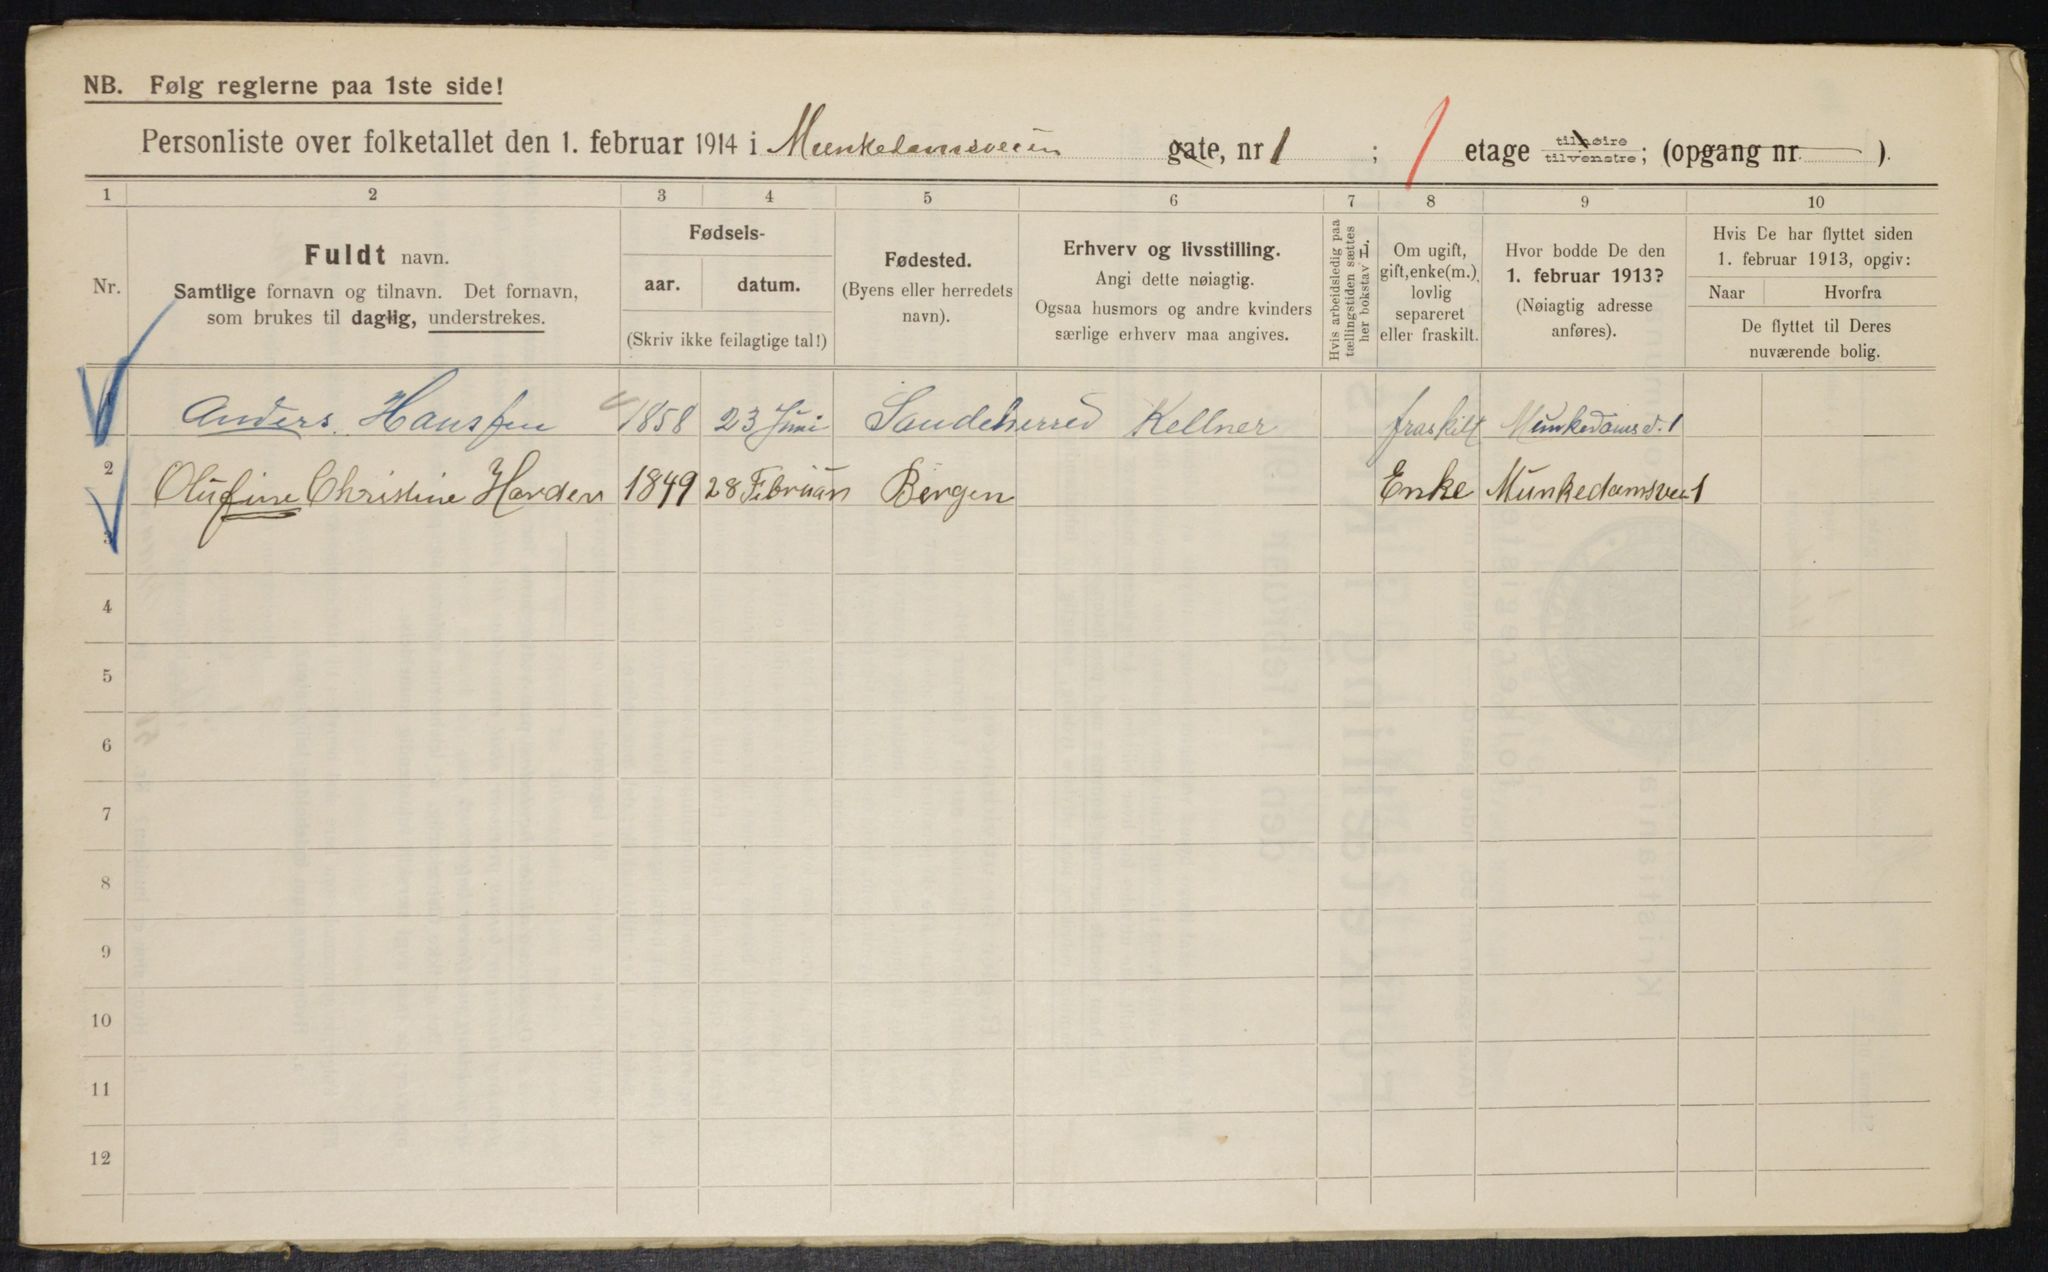 NB. Følg reglerne paa 1ste side!
Personliste over folketallet den 1. februar 1914 i Munkedamsveien gate, nr 1 ; 1 etage tilhøire tilvenstre; (opgang nr. ).
1 2 3 4 5 6 7 8 9 10
Nr.
Fuldt navn.
Samtlige fornavn og tilnavn. Det fornavn,
som brukes til daglig, understrekes.
Fødsels-
aar. datum.
(Skriv ikke feilagtige tal!)
Fødested.
(Byens eller herredets
navn).
Erhverv og livsstilling.
Angi dette nøiagtig.
Ogsaa husmors og andre kvinders
særlige erhverv maa angives.
Hvis arbeidsledig paa
tællingstiden sættes
her bokstav L.
Om ugift,
gift, enke(m.),
lovlig
separeret
eller fraskilt.
Hvor bodde De den
1. februar 1913?
(Nøiagtig adresse
anføres).
Hvis De har flyttet siden
1. februar 1913, opgiv:
Naar Hvorfra
De flyttet til Deres
nuværende bolig.
Anders Hansen 1858 23 Juni Sandeherred Kellner fraskilt Munkedamsv. 1
2 Olufine Christine Harder 1849 28 Februar Bergen Enke Munkedamsvei 1
3
4
5
6
7
8
9
10
11
12